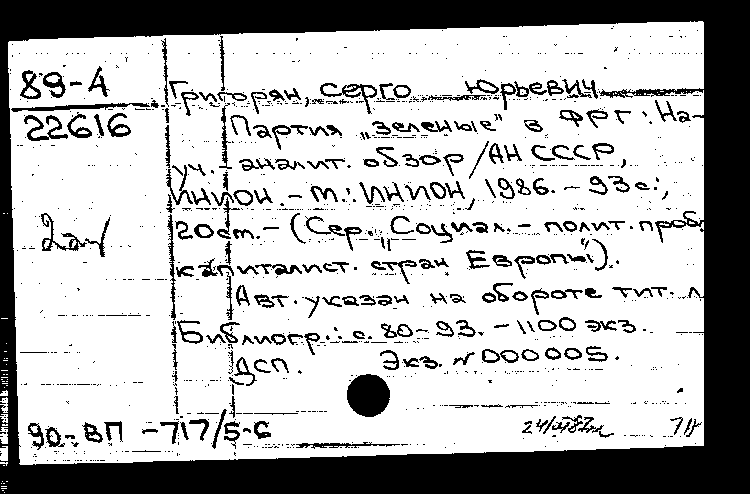 89-4
22616
Григорян, Серго Юрьевич
Партия „зеленые" в ФРГ: На-
уч.-аналит. обзор / АН СССР,
ИНИОН. - М.: ИНИОН, 1986. - 93 с.;
20 см. - (Сер. "Социал.-полит. проб.
капиталист. стран Европы").
Авт. указан на обороте тит. л
Библиогр.: с. 80-93. - 1100 экз.
ДСП. Экз. № 000005.
90-ВП-717/5-6